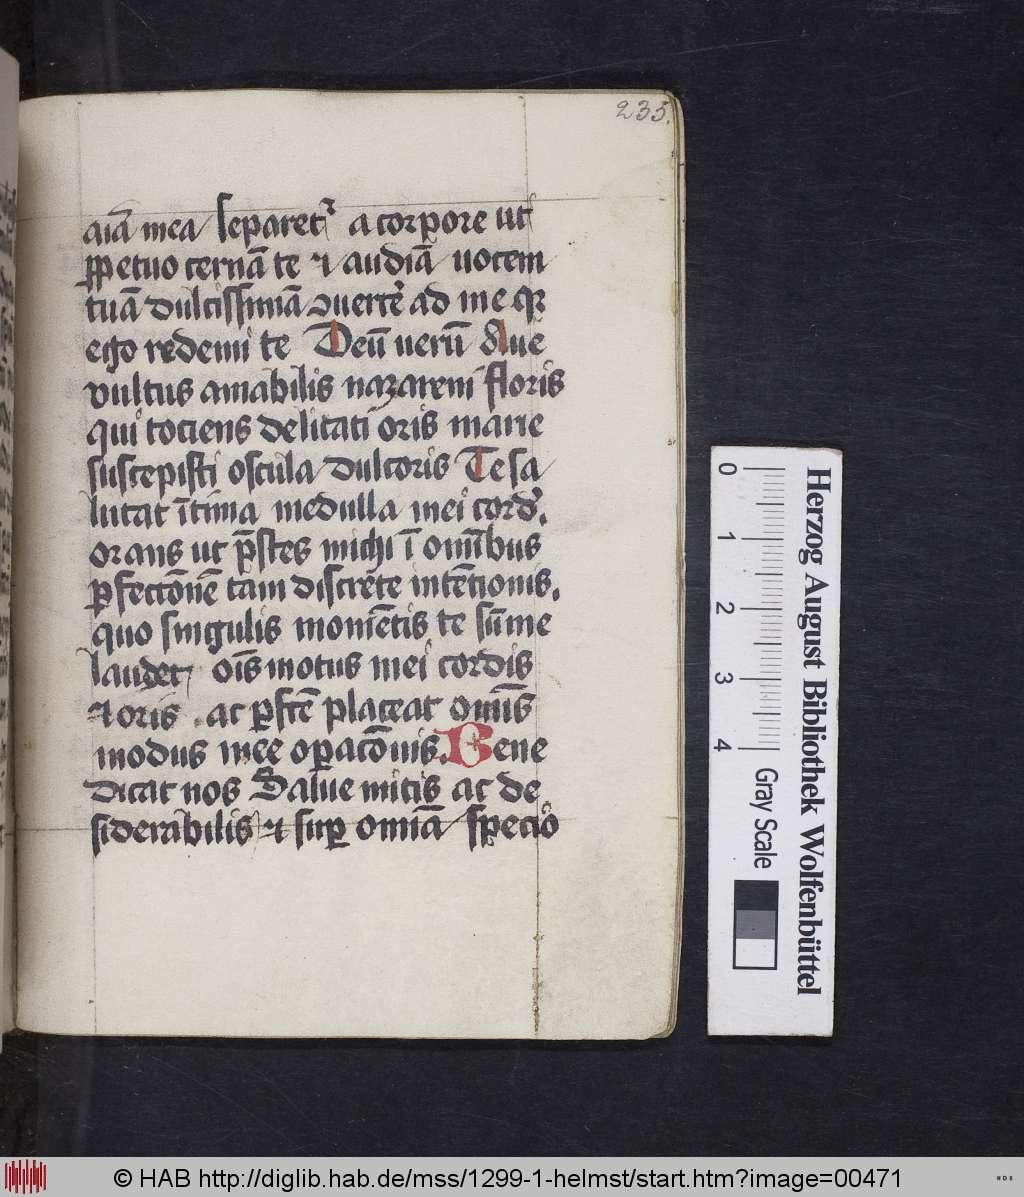 235.
aiā mea separet᷑ a corpore ut
ꝑpetuo cernā te ⁊ audiā uocem
tuā dulcissimā ꝯuerte᷑ ad me qꝛ
ego redemi te Deū uerū Aue
vultus amabilis nazareni floris
qui tociens delicati oris marie
suscepisti oscula dulcoris Te sa
lutat ītima medulla mei cord᷑.
orans ut p̄stes michi ī omībus
ꝑfectōnē tam discrete intētionis.
quo singulis momētis te sūme
laudet oīs motus mei cordis
⁊ oris . ac ꝑfcē placeat omīs
modus mee oꝑacōnis. Bene
dicat nos Salue mitis ac de
siderabilis ⁊ suꝑ omīa specio
0 1 2 3 4
Gray Scale
Herzog August Bibliothek Wolfenbüttel
© HAB http://diglib.hab.de/mss/1299-1-helmst/start.htm?image=00471